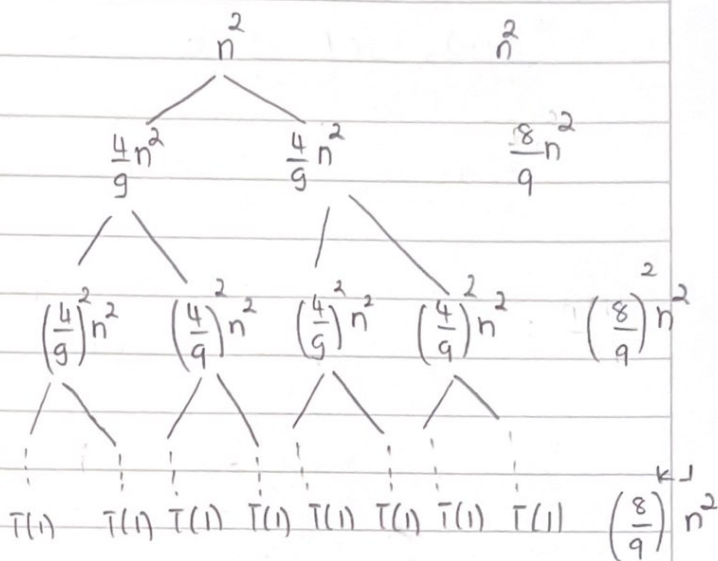 n² n²
4/9 n² 4/9 n² 8/9 n²
(4/9)² n² (4/9)² n² (4/9)² n² (4/9)² n² (8/9)² n²
T(1) T(1) T(1) T(1) T(1) T(1) T(1) T(1) (8/9)ᵏ⁻¹ n²